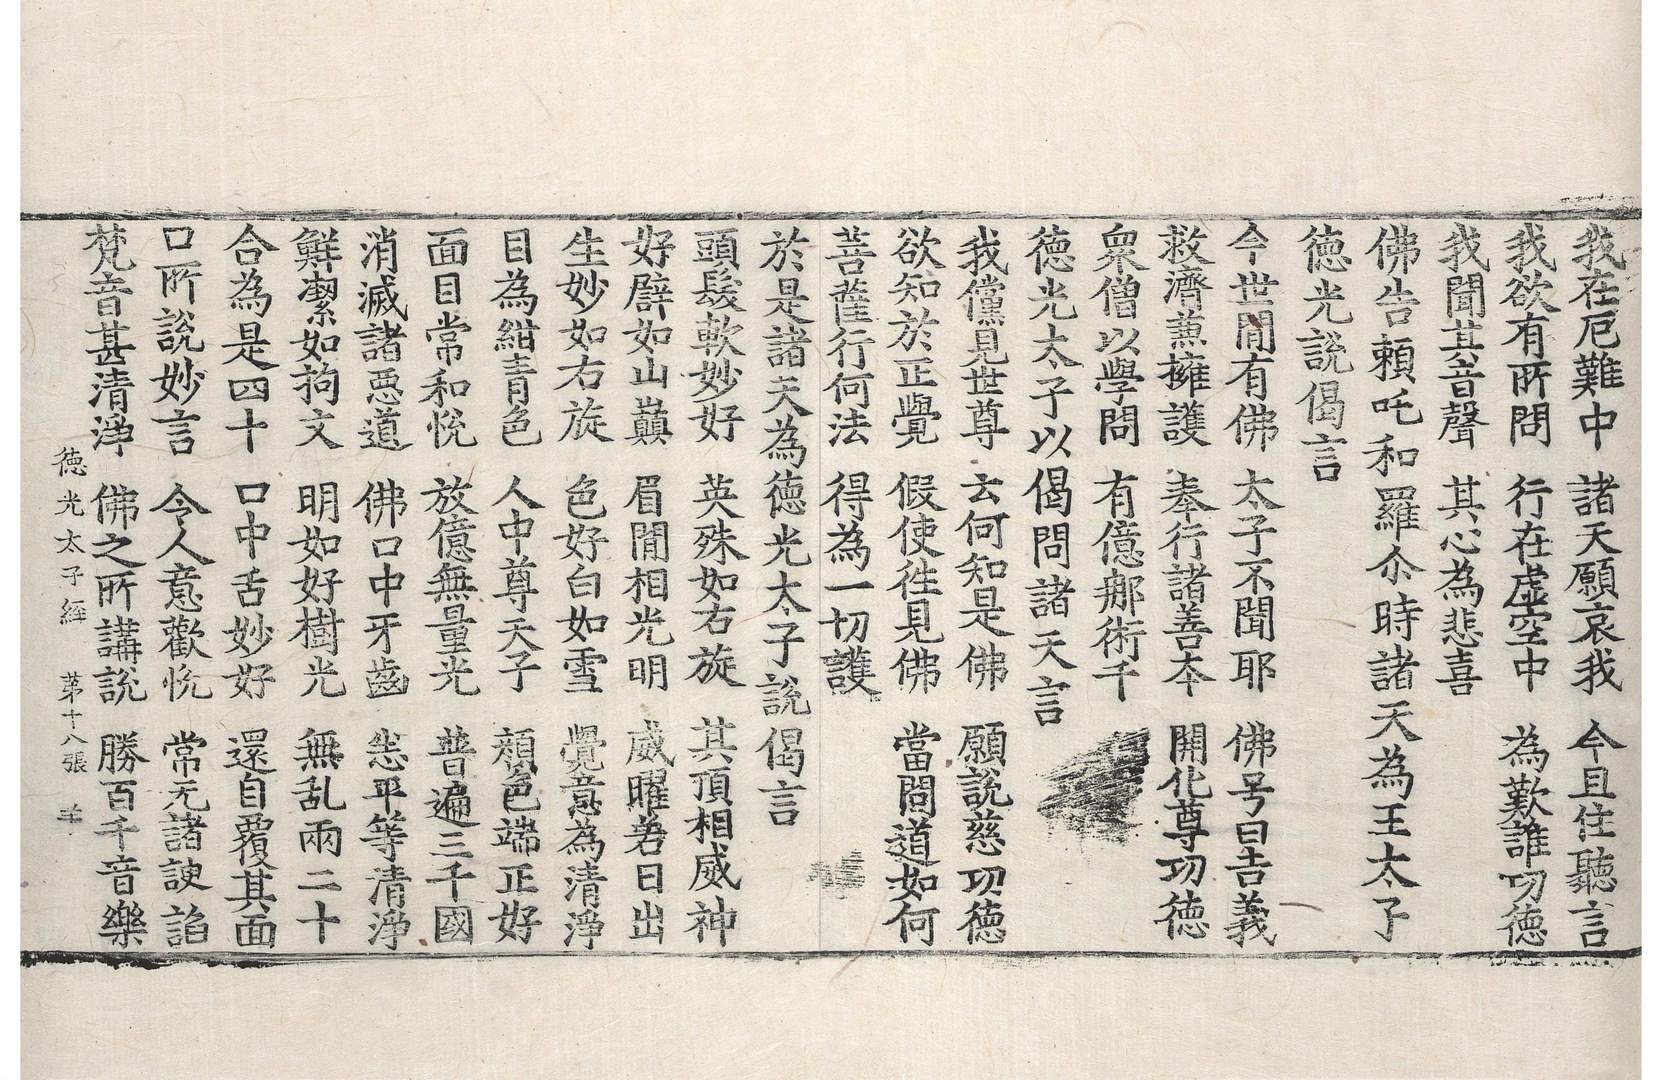 我在厄難中　諸天願哀我　今且住聽言
我欲有所問　行在虛空中　為歎誰功德
我聞其音聲　其心為悲喜
佛告賴吒和羅尒時諸天為王太子
德光說偈言
今世閒有佛　太子不聞耶　佛号曰吉義
救濟兼擁護　奉行諸善本　開化尊功德
衆僧以學問　有億㖠術千
德光太子以偈問諸天言
我儻見世尊　云何知是佛　願說慈功德
欲知於正覺　假使徃見佛　當問道如何
菩薩行何法　得為一切護
於是諸天為德光太子說偈言
頭髮軟妙好　英殊如右旋　其頂相威神
好譬如山巔　眉閒相光明　威曜若日出
生妙如右旋　色好白如雪　覺意為清淨
目為紺青色　人中尊天子　顏色端正好
面目常和悅　放億無量光　普遍三千國
消滅諸惡道　佛口中牙齒　悉平等清淨
鮮潔如拘文　明如好樹光　無乱兩二十
合為是四十　口中舌妙好　還自覆其面
口所說妙言　令人意歡悅　常无諸諛諂
梵音甚清淨　佛之所講說　勝百千音樂
德光太子經　苐十八張　羊